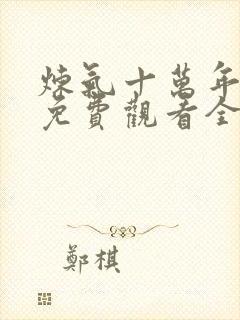 煉氣十萬年
免費觀看全
鄭棋